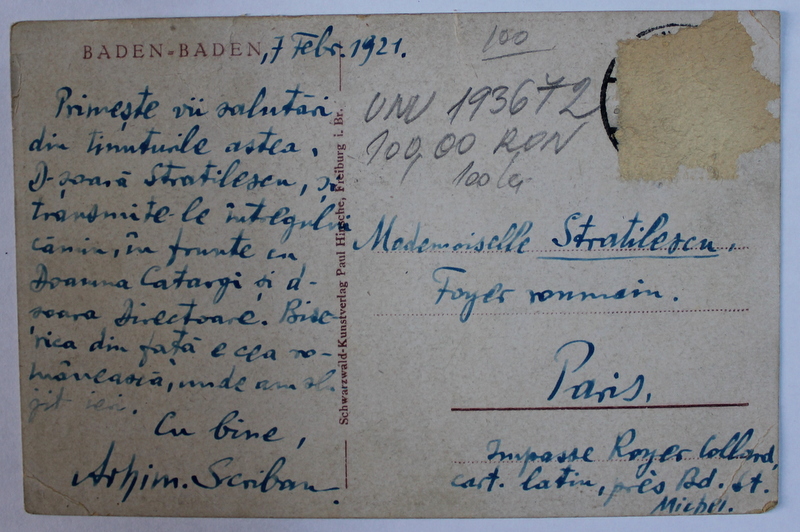 BADEN-BADEN, 7 Febr. 1921.
Primește vii salutări
din ținuturile astea,
D-șoară Stratilescu, și
transmite-le întregului
cămin, în frunte cu
Doamna Catargi și d-
șoara Directoare. Bise-
rica din față e cea ro-
mânească, unde am slu-
jit ieri.
Cu bine,
Arhim. Scriban.
Schwarzwald-Kunstverlag Paul Hirsche, Freiburg i. Br.
100
193672
100,00 RON
100 lei
Mademoiselle Stratilescu,
Foyer roumain.
Paris,
Impasse Royer Collard,
cart. latin, près Bd. St.
Michel.